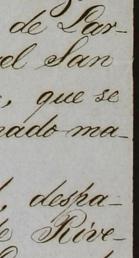 de Lar-
el San
, que se
nado ma-
, despa-
Rive-